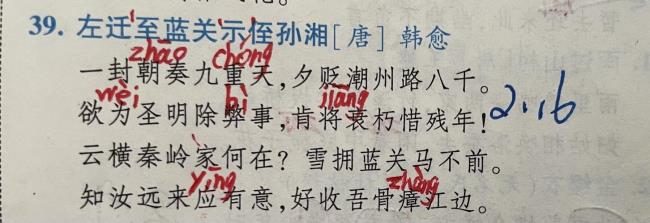 39. 左迁至蓝关示侄孙湘[唐] 韩愈
zhāo chóng
一封朝奏九重天,夕贬潮州路八千。
wèi bì jiāng
欲为圣明除弊事,肯将衰朽惜残年! 2.16
云横秦岭家何在?雪拥蓝关马不前。
yīng zhàng
知汝远来应有意,好收吾骨瘴江边。